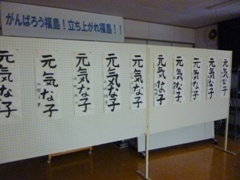 がんばろう福島！立ち上がれ福島！！
元気な子
元気な子
元気な子
元気な子
元気な子
元気な子
元気な子
元気な子
元気な子
元気な子